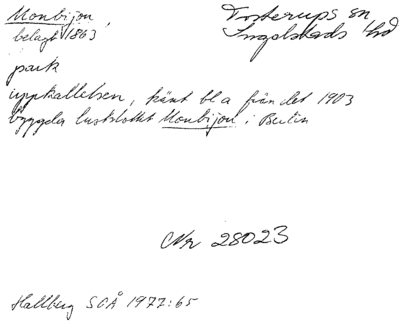 Monbijou,
belagt 1863
Tosterups sn
Ingelstads hd
park
uppkallelsen, känt bl a från det 1903
byggda lustslottet Monbijou i Berlin
Nr 28023
Hallberg SOÅ 1977:65